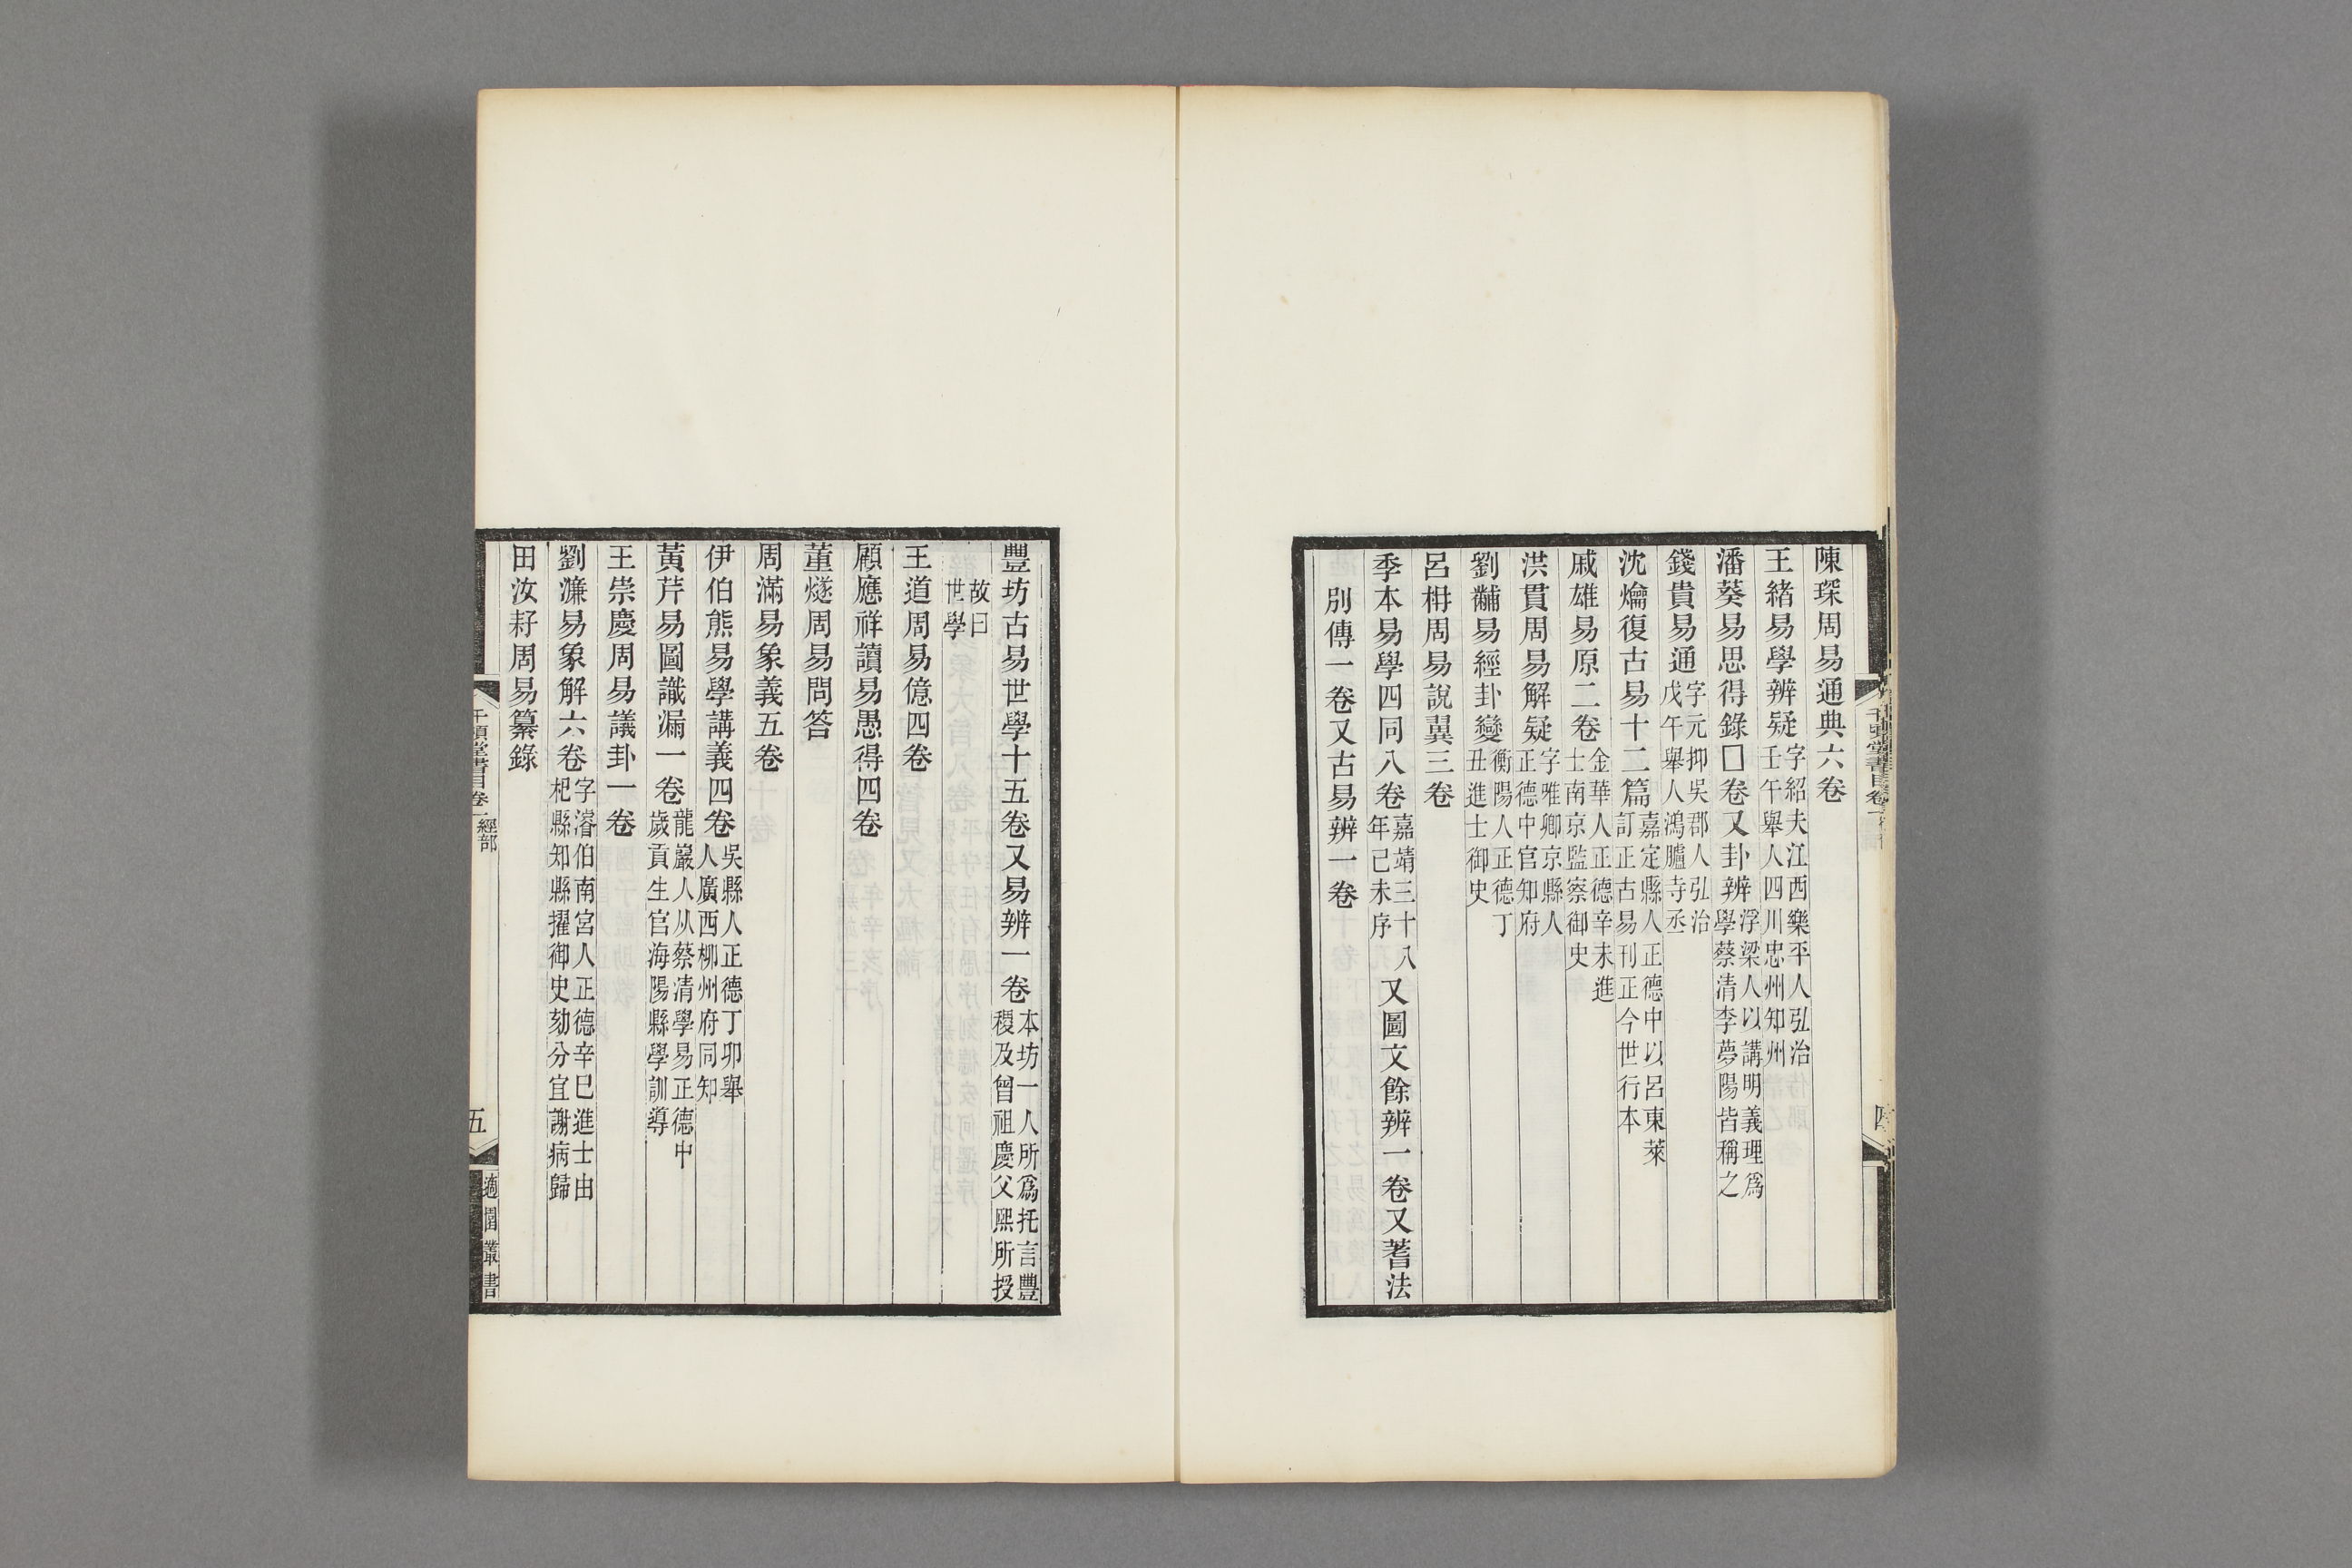 陳琛周易通典六卷
王緒易學辨疑字紹夫江西樂平人弘治壬午舉人四川忠州知州
潘葵易思得錄□卷又卦辨浮梁人以講明義理爲學蔡清李夢陽皆稱之
錢貴易通字元抑吳郡人弘治戊午舉人鴻臚寺丞
沈爚復古易十二篇嘉定縣人正德中以呂東萊訂正古易刊正今世行本
戚雄易原二卷金華人正德辛未進士南京監察御史
洪貫周易解疑字唯卿京縣人正德中官知府
劉黼易經卦變衡陽人正德丁丑進士御史
呂柟周易說翼三卷
季本易學四同八卷嘉靖三十八年己未序又圖文餘辨一卷又蓍法
別傳一卷又古易辨一卷
豐坊古易世學十五卷又易辨一卷本坊一人所爲托言豐稷及曾祖慶父熙所授
故曰世學
王道周易億四卷
顧應祥讀易愚得四卷
董燧周易問答
周滿易象義五卷
伊伯熊易學講義四卷吳縣人正德丁卯舉人廣西柳州府同知
黃芹易圖識漏一卷龍巖人从蔡清學易正德中歲貢生官海陽縣學訓導
王崇慶周易議卦一卷
劉濂易象解六卷字濬伯南宮人正德辛巳進士由杞縣知縣擢御史劾分宜謝病歸
田汝耔周易纂錄
千頃堂書目卷一 經部
五
適園叢書